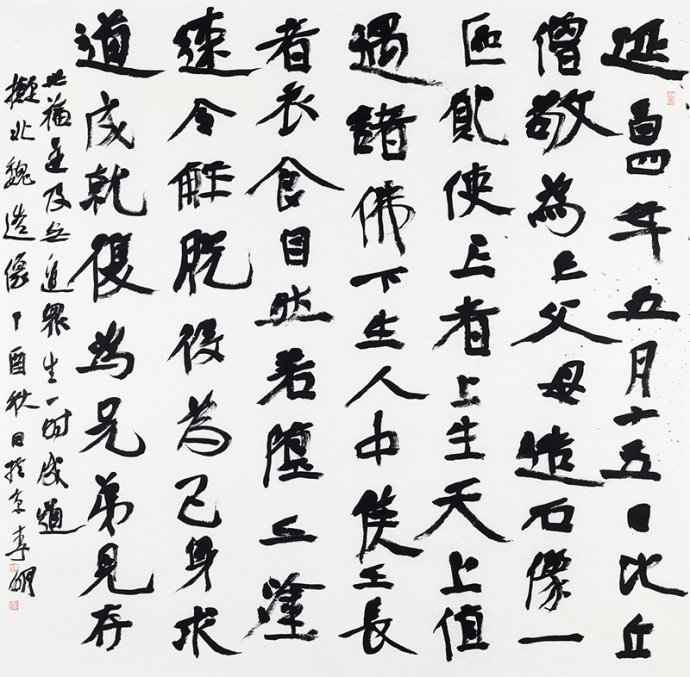 延昌四年五月十五日比丘
僧敬為亡父母造石像一
區願使亡者上生天上值
遇諸佛下生人中侯王長
者衣食自然若墮三塗
速令解脱復為己身求
道成就復為兄弟見存
此福逮及無邊眾生一時成道
擬北魏造像丁酉秋日於京李明